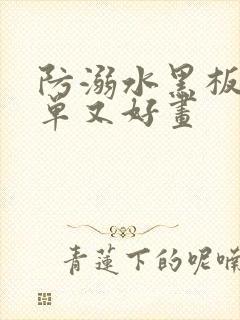 防溺水黑板
单又好畫
青蓮下的呢喃